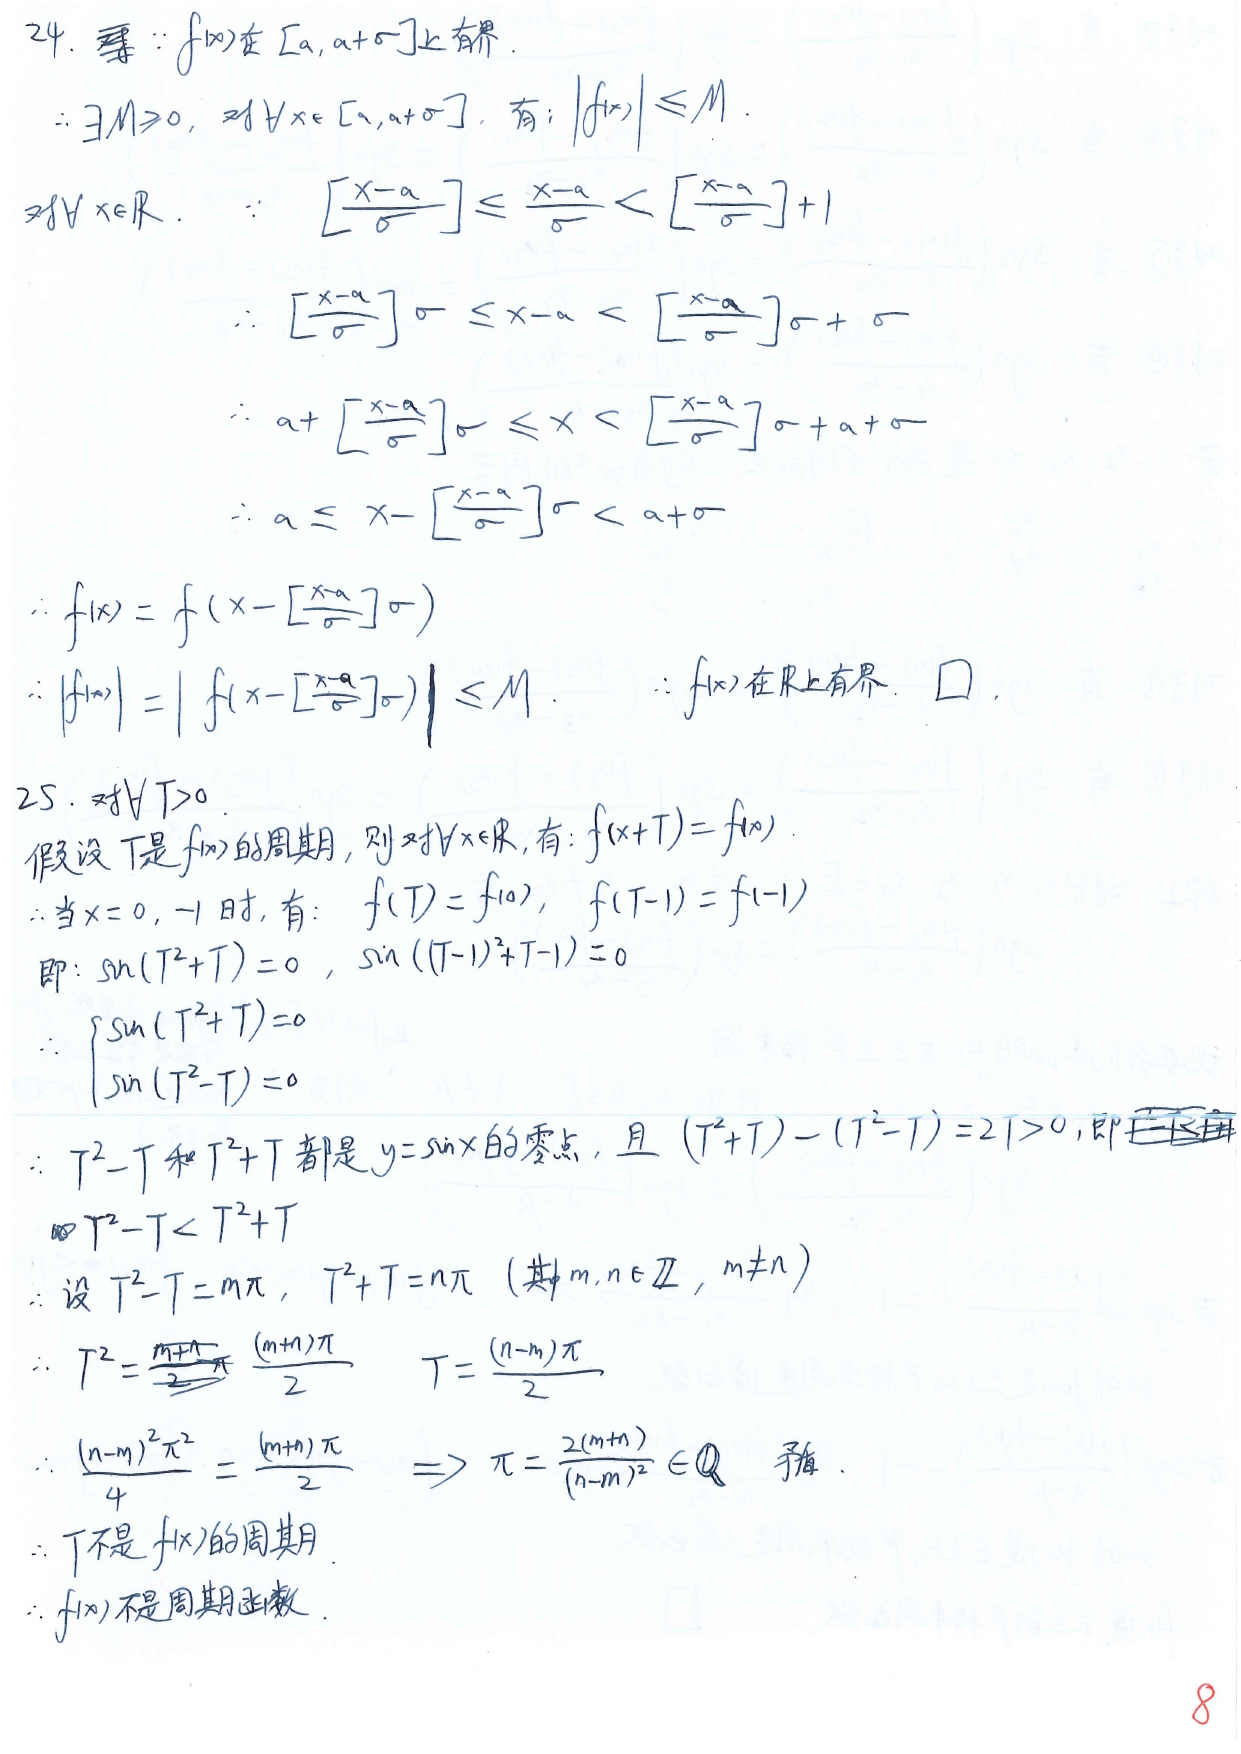 24. ∵ f(x)在 [a, a+σ]上有界.
∴ ∃M≥0, 对∀x∈[a, a+σ], 有: |f(x)| ≤ M.
对∀x∈R. ∵ [(x-a)/σ] ≤ (x-a)/σ < [(x-a)/σ]+1
∴ [(x-a)/σ]σ ≤ x-a < [(x-a)/σ]σ + σ
∴ a+[(x-a)/σ]σ ≤ x < [(x-a)/σ]σ + a + σ
∴ a ≤ x-[(x-a)/σ]σ < a+σ
∴ f(x) = f(x-[(x-a)/σ]σ)
∴ |f(x)| = |f(x-[(x-a)/σ]σ)| ≤ M. ∴ f(x)在R上有界. □.
25. 对∀T>0.
假设T是f(x)的周期, 则对∀x∈R, 有: f(x+T)=f(x).
∴当x=0, -1时, 有: f(T)=f(0), f(T-1)=f(-1)
即: sin(T²+T)=0, sin((T-1)²+T-1)=0
∴ { sin(T²+T)=0
sin(T²-T)=0
∴ T²-T和T²+T都是y=sinx的零点, 且 (T²+T)-(T²-T)=2T>0, 即
T²-T < T²+T
∴ 设 T²-T=mπ, T²+T=nπ (其中m,n∈ℤ, m≠n)
∴ T²= (m+n)π/2 T= (n-m)π/2
∴ (n-m)²π²/4 = (m+n)π/2 ⟹ π= 2(m+n)/(n-m)² ∈ℚ 矛盾.
∴ T不是f(x)的周期.
∴ f(x)不是周期函数.
8